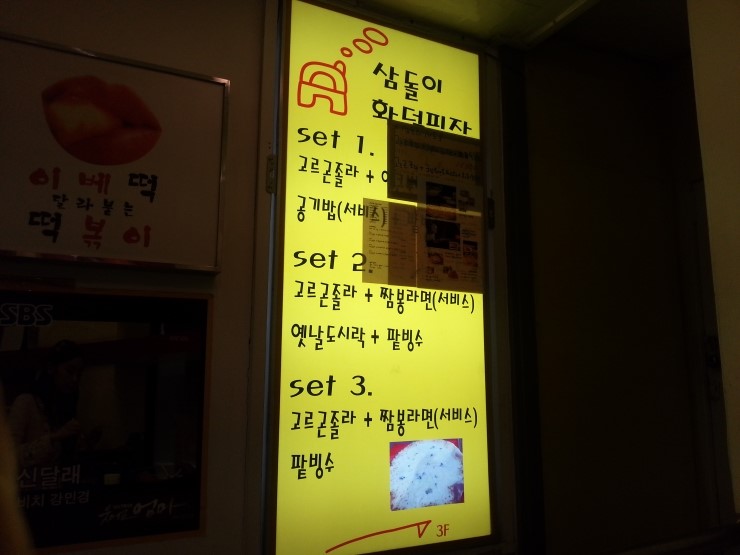 이베떡
달라붙는
떡볶이
SBS
신달래
김민경
삼돌이
화덕피자
set 1.
고르곤졸라 +
공기밥(서비스)
set 2.
고르곤졸라 + 짬뽕라면(서비스)
옛날도시락 + 팥빙수
set 3.
고르곤졸라 + 짬뽕라면(서비스)
팥빙수
3F